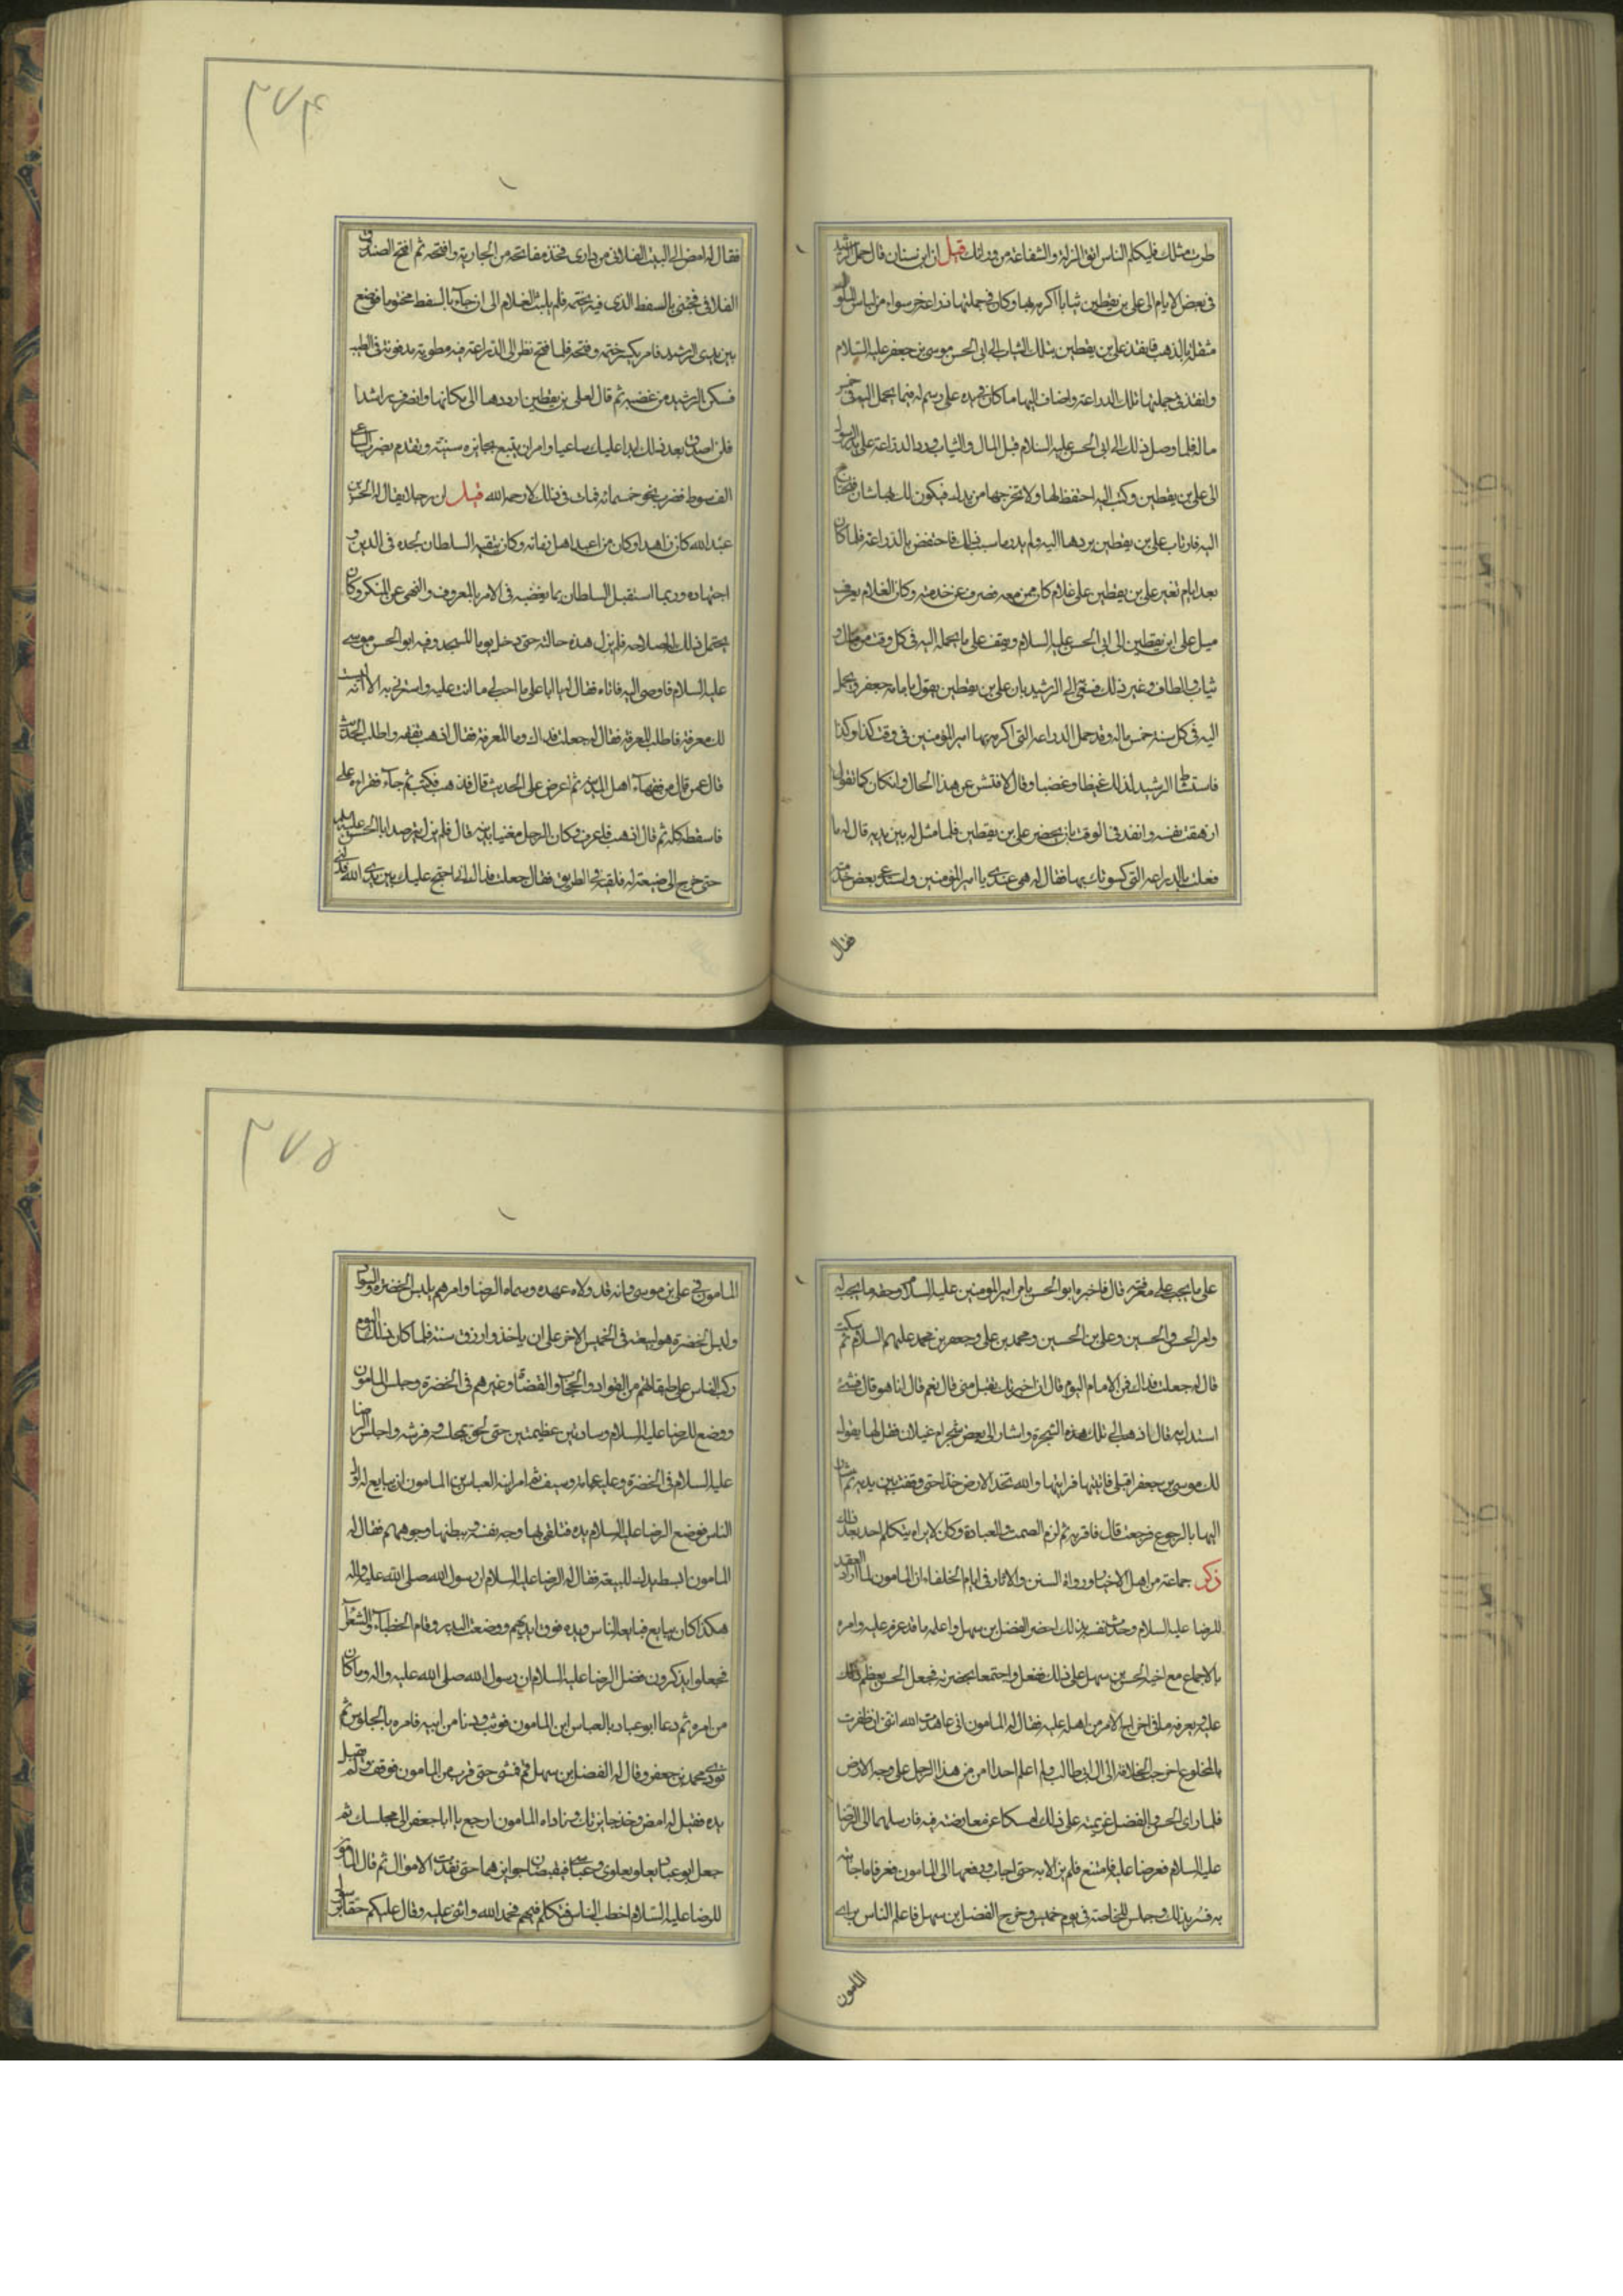 طرب مثلك فليكلم الناس اتق المزلة والشفاعة من ورائك قيل ان ابن سنان قال حمل الرشيد
في بعض الايام الى علي بن يقطين ثيابا اكرمه بها وكان في جملتها دراعة خز سوداء من لباس الملوك
مثقلة بالذهب فانفذ علي بن يقطين بتلك الثياب الى ابي الحسن موسى بن جعفر عليه السلام
وانفذ في جملتها تلك الدراعة واضاف اليها ما كان عنده على رسم له فيما يحمل اليه من خمس
ماله فلما وصل ذلك الى ابي الحسن عليه السلام قبل المال والثياب ورد الدراعة على يد الرسول
الى علي بن يقطين وكتب اليه احتفظ بها ولا تخرجها من يدك فيكون لك بها شان تحتاج
اليه فارتاب علي بن يقطين بردها اليه ولم يدر ما سبب ذلك فاحتفظ بالدراعة فلما كان
بعد ايام تغير علي بن يقطين على غلام كان ممن معه فصرف عن خدمته وكان الغلام يعرف
ميل علي ابن يقطين الى ابي الحسن عليه السلام ويقف على ما يحمله اليه في كل وقت من مال و
ثياب والطاف وغير ذلك فسعى الى الرشيد بان علي بن يقطين يقول بامامة جعفر ويحمل
اليه في كل سنة خمس ماله وقد حمل الدراعة التي اكرمه بها امير المؤمنين في وقت كذا وكذا
فاستشاط الرشيد لذلك غيظا وغضبا وقال لافتش عن هذا الحال وان كان كما تقول
ازهقت نفسه وانفذ في الوقت بان يحضر علي بن يقطين فلما مثل له بين يديه قال له ما
فعلت بالدراعة التي كسوتك بها فقال له هي عندي يا امير المؤمنين واستدعى بعض خدمه
فقال
٢٧٤
فقال له امض الى البيت الفلاني من داري فخذ مفاتحه من الجارية وافتحه ثم افتح الصندوق
الفلاني فجئني بالسفط الذي فيه بختمه فلم يلبث الغلام الى ان جاء بالسفط مختوما فوضع
بين يدي الرشيد فامر بكسر ختمه وفتحه فلما فتح نظر الى الدراعة فيه مطوية مدفونة في الطيب
فسكن الرشيد من غضبه ثم قال لعلي بن يقطين ارددها الى مكانها وانصرف راشدا
فلن اصدق بعد ذلك ابدا عليك ساعيا وامر ان يتبع بجايزة سنية وتقدم بضرب الساعي
الف سوط فضرب نحو خمسمائة فمات في ذلك لا رحمه الله قيل ان رجلا يقال له الحسن بن
عبد الله كان زاهدا وكان من اعبد اهل زمانه وكان يتقيه السلطان لجده في الدين و
اجتهاده وربما استقبل السلطان بما يغضبه في الامر بالمعروف والنهي عن المنكر وكان
يحتمل ذلك لصلاحه فلم يزل هذه حالته حتى دخل يوما المسجد وفيه ابو الحسن موسى
عليه السلام فاومى اليه فاتاه فقال له يا ابا علي ما احب الي ما انت عليه واسرني به الا انه ليست
لك معرفة فاطلب المعرفة فقال له جعلت فداك وما المعرفة فقال اذهب تفقه واطلب الحديث
قال عمن قال من فقهاء اهل المدينة ثم اعرض علي الحديث قال فذهب فكتب ثم جاء فقراه على
فاسقطه كله ثم قال اذهب فاعرف وكان الرجل معنيا بدينه قال فلم يزل يترصد ابا الحسن عليه السلام
حتى خرج الى ضيعة له فلقيه في الطريق فقال جعلت فداك انا احتج عليك بين يدي الله فدلني
على ما يجب علي معرفته قال فاخبره ابو الحسن بامر امير المؤمنين عليه السلام وحقه ما يجب له
وامر الحسن والحسين وعلي بن الحسين ومحمد بن علي وجعفر بن محمد عليهم السلام ثم سكت
قال له جعلت فداك فمن الامام اليوم قال ان اخبرتك تقبل مني قال نعم قال انا هو قال فشئ
استدل به قال اذهب الى تلك هذه الشجرة واشار الى بعض شجر ام غيلان فقل لها يقول
لك موسى بن جعفر اقبلي فاتيتها فرايتها والله تخد الارض خدا حتى وقفت بين يديه ثم اشار
اليها بالرجوع فرجعت قال فاقر به ثم لزم الصمت والعبادة وكان لا يراه يتكلم احد بعد ذلك
ذكر جماعة من اهل الاخبار ورواة السنن والاثار في ايام الخلفاء ان المامون لما اراد العقد
للرضا عليه السلام وحدث نفسه بذلك احضر الفضل بن سهل واعلمه ما قد عزم عليه وامره
بالاجماع مع اخيه الحسن بن سهل على ذلك ففعل واجتمعا بحضرته فجعل الحسن يعظم ذلك
عليه ويعرفه ما في اخراج الامر من اهله عليه فقال له المامون اني عاهدت الله انني ان ظفرت
بالمخلوع اخرجت الخلافة الى آل ابي طالب ولم اعلم احدا امن من هذا الرجل على وجه الارض
فلما راى الحسن والفضل عزيمته على ذلك امسكا عن معارضته فيه فارسلهما الى الرضا
عليه السلام فعرضا عليه فامتنع فلم يزالا به حتى اجاب ودفعها الى المامون فعرفاه اجابته
به فسر بذلك وجلس للخاصة في يوم خميس وخرج الفضل بن سهل فاعلم الناس براي
المامون
٢٧٥
المامون في علي بن موسى وانه قد ولاه عهده وسماه الرضا وامرهم بلبس الخضرة والعود
ولبس الخضرة هو لبيعته في الخميس الاخر على ان ياخذوا رزق سنة فلما كان ذلك اليوم
ركب الناس على طبقاتهم من القواد والحجاب والقضاة وغيرهم في الخضرة وجلس المامون
ووضع للرضا عليه السلام وسادتين عظيمتين حتى لحق بمجلسه وفرشه واجلس الرضا
عليه السلام في الخضرة وعليه عمامة وسيف ثم امر ابنه العباس بن المامون ان يبايع له اول
الناس فوضع الرضا عليه السلام يده فتلقى بها وجه نفسه وببطنها وجوههم فقال له
المامون ابسط يدك للبيعة فقال له الرضا عليه السلام ان رسول الله صلى الله عليه واله
هكذا كان يبايع فبايعه الناس ويده فوق ايديهم ووضعت البدر وقام الخطباء والشعراء
فجعلوا يذكرون فضل الرضا عليه السلام ان رسول الله صلى الله عليه واله وما كان
من امره ثم دعا ابو عباد بالعباس ابن المامون فوثب ودنا من ابيه فامره بالجلوس ثم
نودي محمد بن جعفر وقال له الفضل بن سهل قم فمشى حتى قرب من المامون فوقف ولم يقبل
يده فقيل له امض وخذ جائزتك وناداه المامون ارجع يا ابا جعفر الى مجلسك ثم
جعل ابو عباد يدعو بعلوي وعباسي فيقبضان جوايزهما حتى نفدت الاموال ثم قال المامون
للرضا عليه السلام اخطب الناس فتكلم فيهم فحمد الله واثنى عليه وقال عليكم حقا برسول